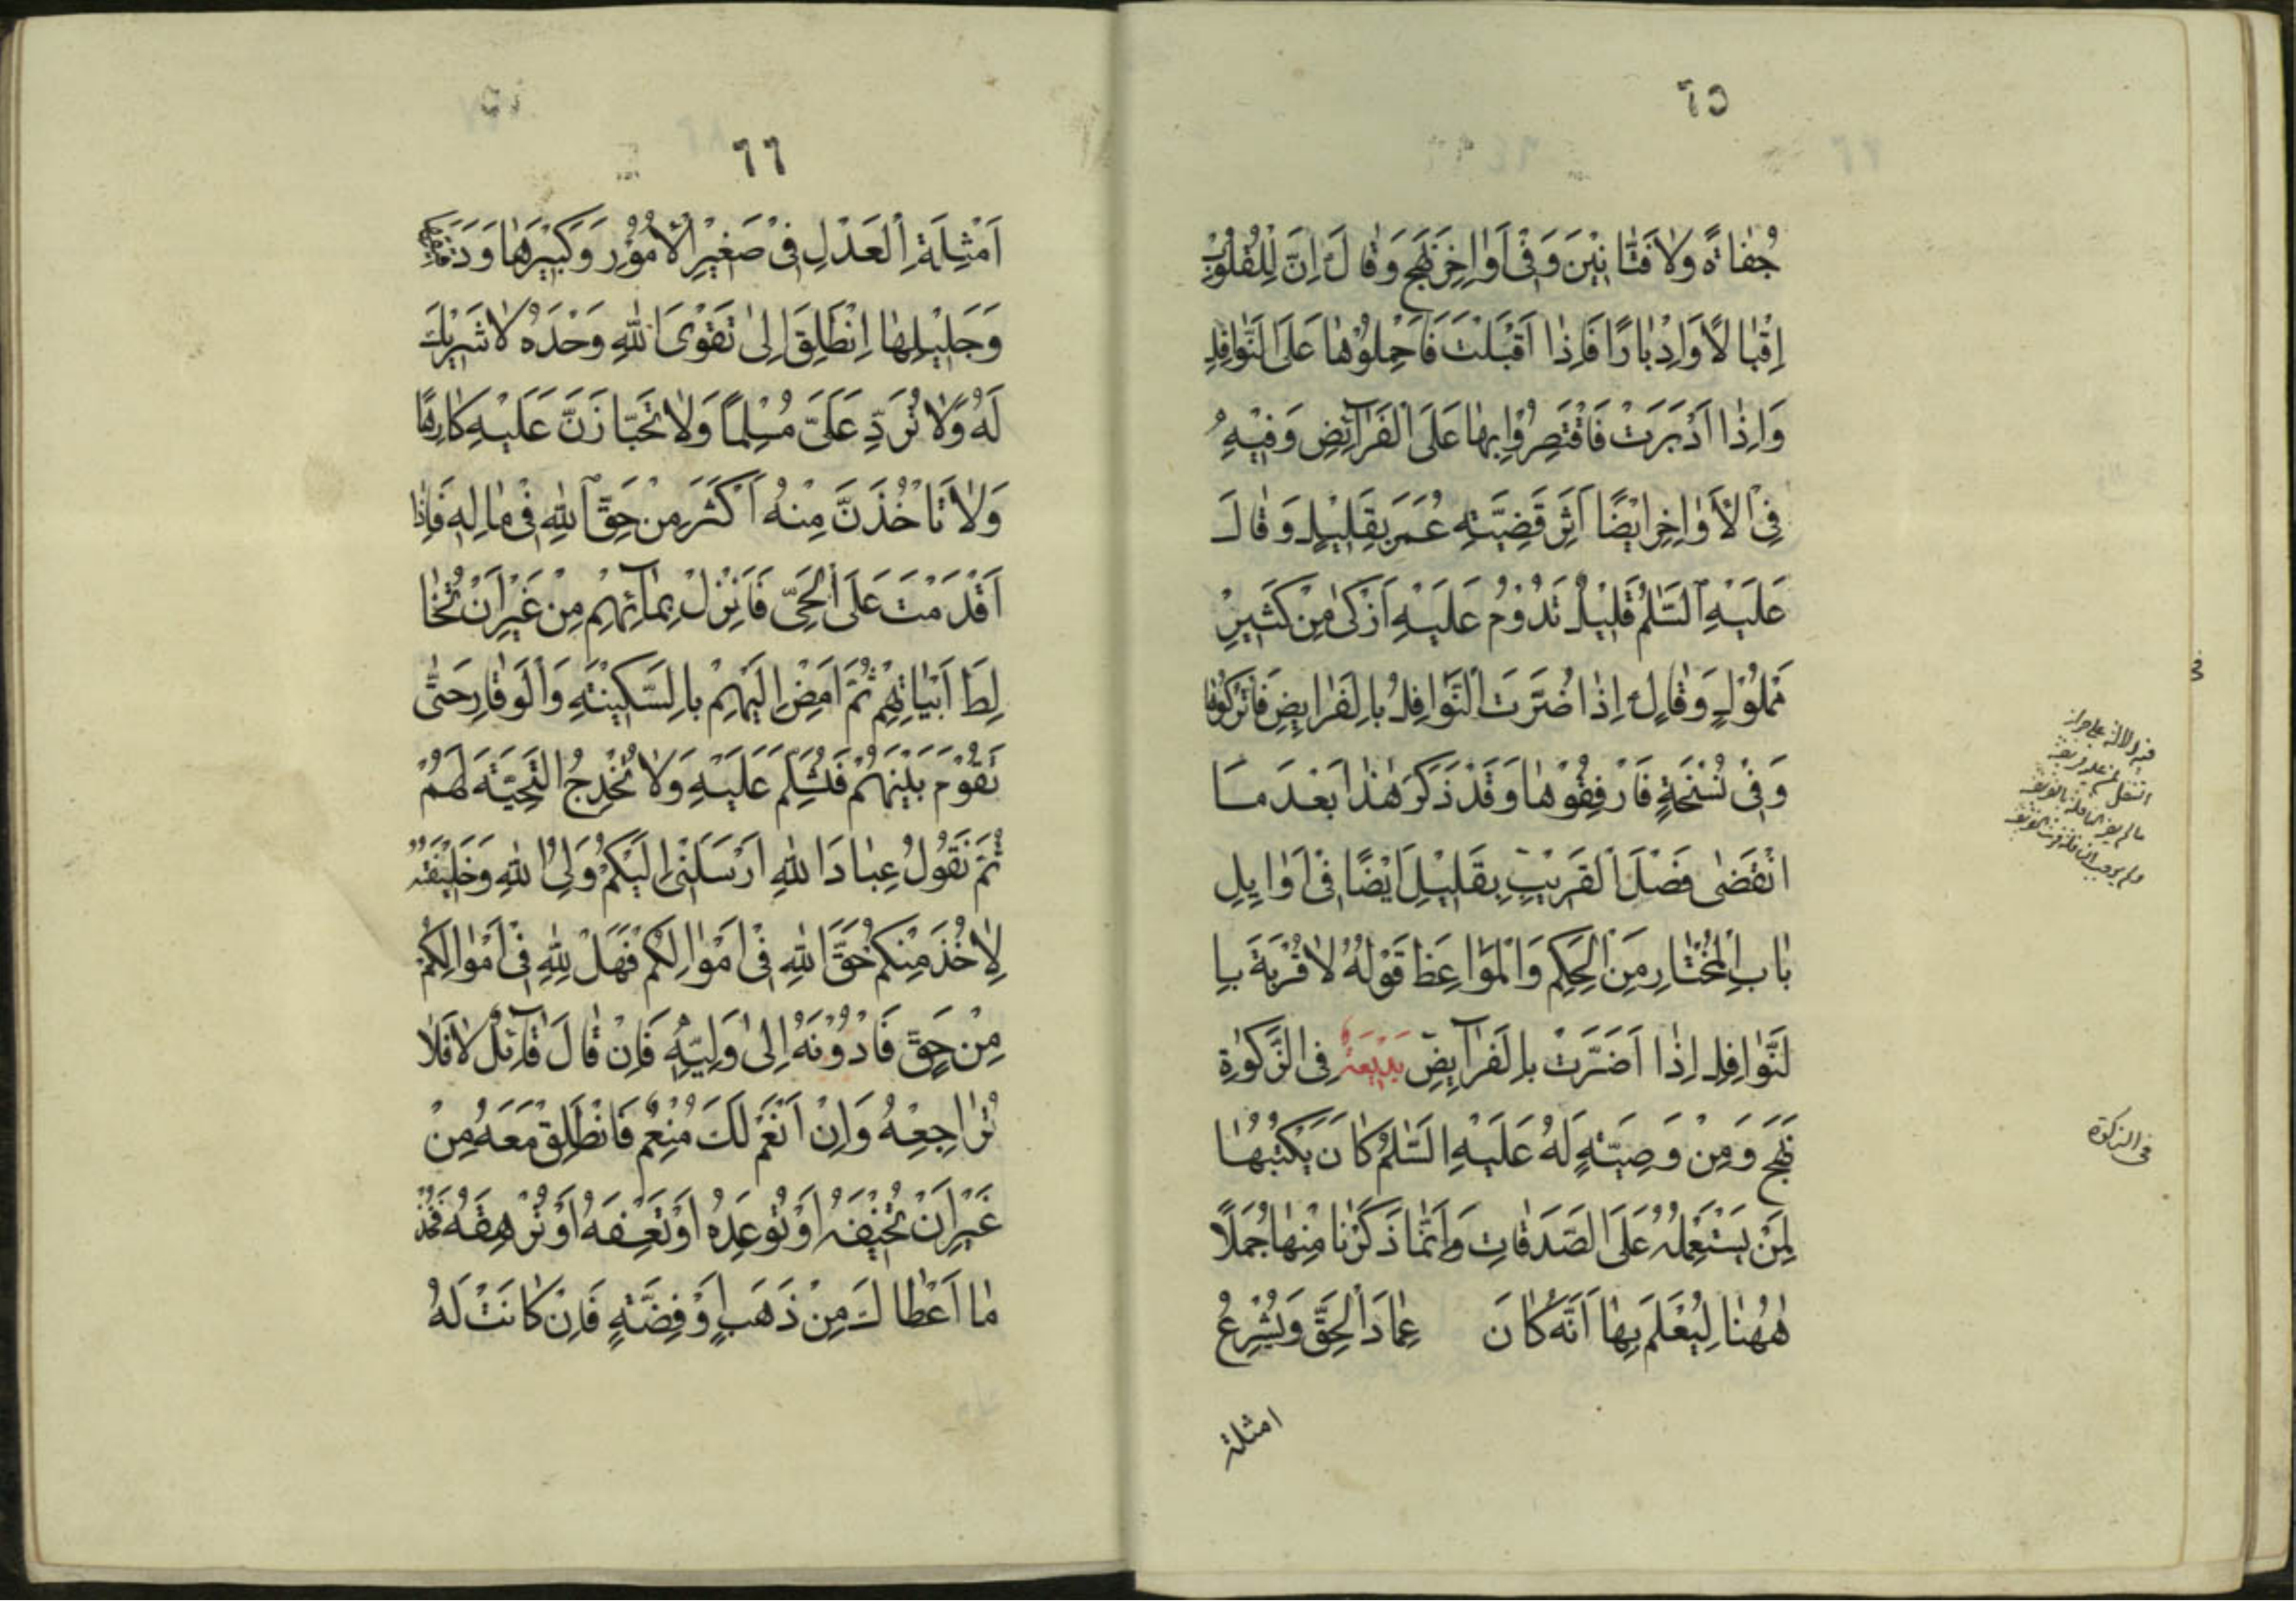 ٦٥
جُفٰاةً وَلٰا فَتّٰانِيْنَ وَفِيْ اَوٰاخِرِ نَهْجٍ وَقٰالَ اِنَّ لِلْقُلُوْبِ
اِقْبٰالًا وَاِدْبٰارًا فَاِذٰا اَقْبَلَتْ فَاحْمِلُوْهٰا عَلَى النَّوٰافِلِ
وَاِذٰا اَدْبَرَتْ فَاقْتَصِرُوْا بِهٰا عَلَى الْفَرٰائِضِ وَفِيْهِ
فِى الْاَوٰاخِرِ اَيْضًا اَثِرَ قَضِيَّتِهِ عُمَرَ بِقَلِيْلٍ وَقٰالَ
عَلَيْهِ السَّلٰمُ قَلِيْلٌ تَدُوْمُ عَلَيْهِ اَزْكىٰ مِنْ كَثِيْرٍ
مَمْلُوْلٍ وَقٰالَ اِذٰا اضَرَّتِ النَّوٰافِلُ بِالْفَرٰايِضِ فَاتْرُكُوْهٰا
وَفِيْ نُسْخَةٍ فَارْفِقُوْهٰا وَقَدْ ذَكَرَ هٰذٰا بَعْدَ مٰا
انْقَضٰى فَصْلَ الْقَرِيْبِ بِقَلِيْلِ اَيْضًا فِيْ اَوٰايِلِ
بٰابِ الْمُخْتٰارِ مِنَ الْحِكَمِ وَالْمَوٰاعِظِ قَوْلُهُ لٰا قُرْبَةَ بِا
لنَّوٰافِلِ اِذٰا اَضَرَّتْ بِالْفَرٰايِضِ بَدِيْعَةٌ فِى الزَّكوٰةِ
نَهْجٍ وَمِنْ وَصِيَّتِهٍ لَهُ عَلَيْهِ السَّلٰمُ كٰانَ يَكْتُبُهٰا
لِمَنْ يَسْتَعْمِلُهُ عَلَى الصَّدَقٰاتِ وَاِنَّمٰا ذَكَرْنٰا مِنْهٰا جُمَلًا
هٰهُنٰا لِيُعْلَمَ بِهٰا اَنَّهُ كٰانَ عِمٰادَ الْحَقِّ وَيُشْرِعُ
امثلة
فى الزكوة
٦٦
اَمْثِلَةَ الْعَدْلِ فِيْ صَغِيْرِ الْاُمُوْرِ وَكَبِيْرِهٰا وَدَقِيْقِهٰا
وَجَلِيْلِهٰا اِنْطَلِقْ اِلىٰ تَقْوَى اللهِ وَحْدَهُ لٰا شَرِيْكَ
لَهُ وَلٰا تُرَدِّ عَلَىَّ مُسْلِمًا وَلٰا تَحْبٰازَنَّ عَلَيْهِ كٰارِهًا
وَلٰا تَاْخُذَنَّ مِنْهُ اَكْثَرَ مِنْ حَقِّ اللهِ فِيْ مٰالِهِ فَاِذٰا
اَقْدَمْتَ عَلَى الْحَىِّ فَانْزِلْ بِمٰائِهِمْ مِنْ غَيْرِ اَنْ تُخٰا
لِطَ اَبْيٰاتِهِمْ ثُمَّ امْضِ اِلَيْهِمْ بِالسَّكِيْنَةِ وَالْوَقٰارِ حَتّٰى
تَقُوْمَ بَيْنَهُمْ فَتُسَلِّمَ عَلَيْهِ وَلٰا تُخْدِجُ التَّحِيَّةَ لَهُمْ
ثُمَّ تَقُوْلُ عِبٰادَ اللهِ اَرْسَلَنِىْ اِلَيْكُمْ وَلِىُّ اللهِ وَخَلِيْفَتُهُ
لِاٰخُذَ مِنْكُمْ حَقَّ اللهِ فِىْ اَمْوٰالِكُمْ فَهَلْ لِلّٰهِ فِىْ اَمْوٰالِكُمْ
مِنْ حَقٍّ فَادُّوْنَهُ اِلىٰ وَلِيِّهِ فَاِنْ قٰالَ قٰائِلٌ لٰا فَلٰا
تُرٰاجِعْهُ وَاِنْ اَنْعَمَ لَكَ مُنْعِمٌ فَانْطَلِقْ مَعَهُ مِنْ
غَيْرِ اَنْ تُخِيْفَهُ اَوْ تُوْعِدَهُ اَوْ تَعْسِفَهُ اَوْ تُرْهِقَهُ فَخُذْ
مٰا اَعْطٰاكَ مِنْ ذَهَبٍ اَوْ فِضَّةٍ فَاِنْ كٰانَتْ لَهُ